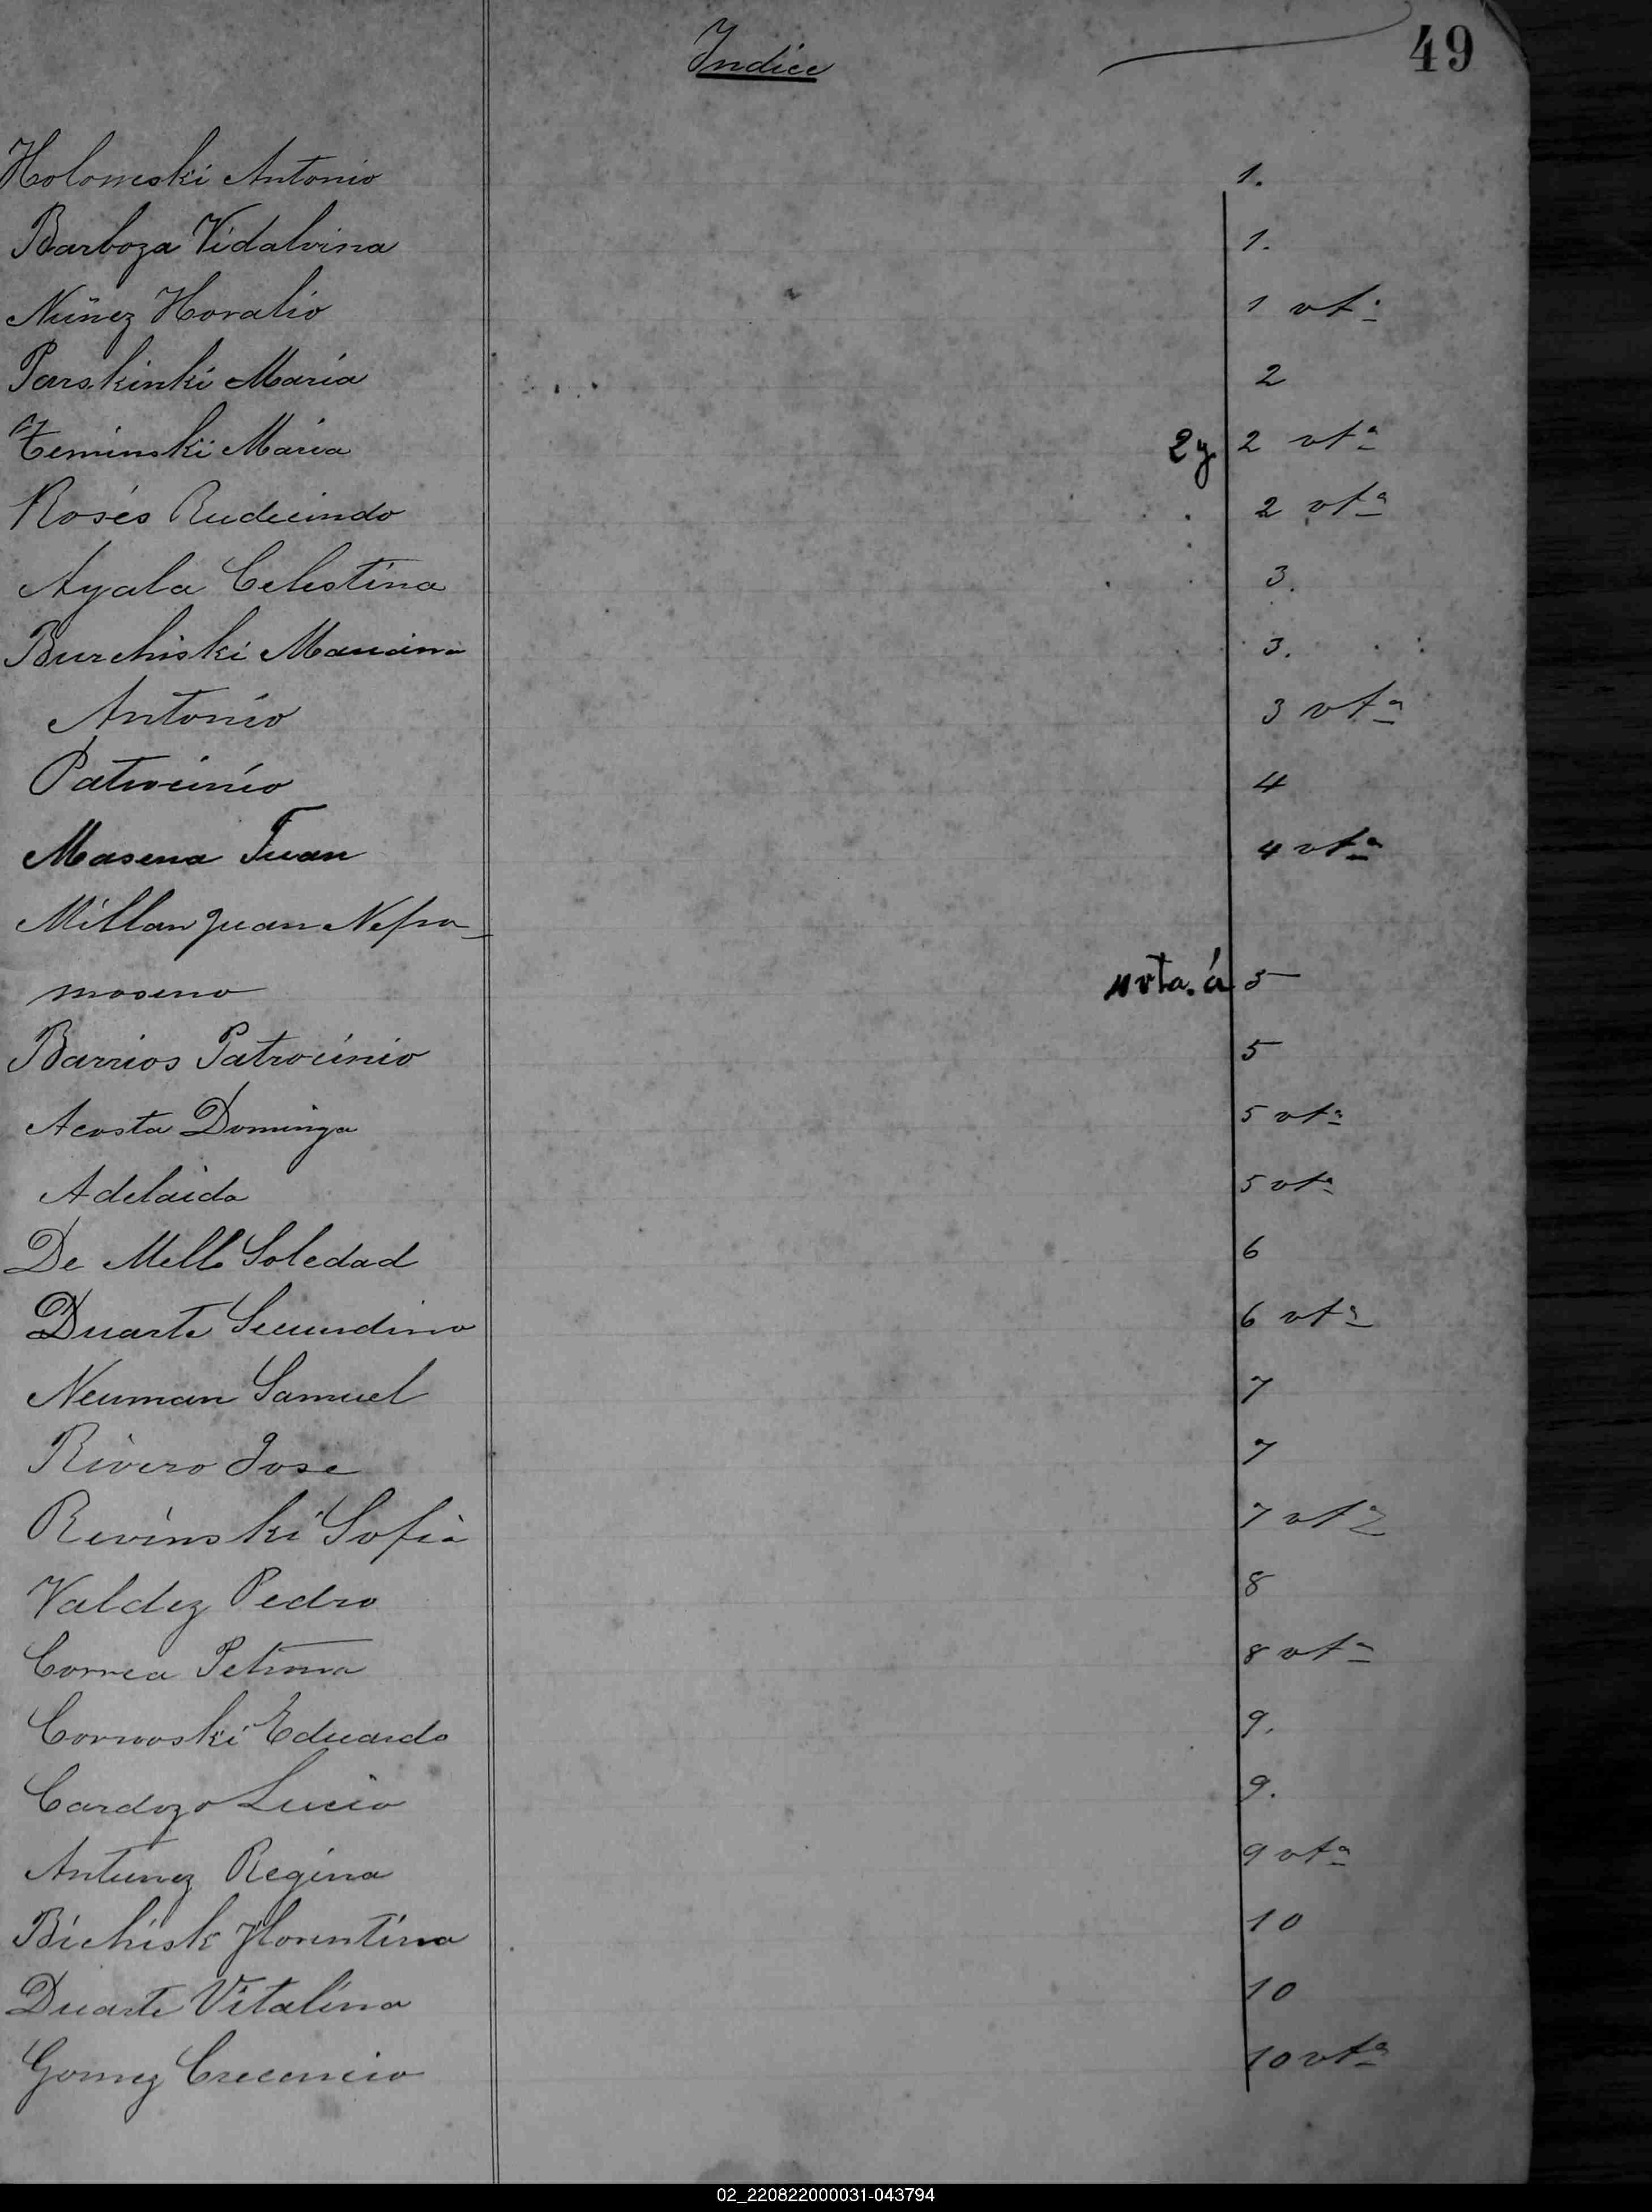 Indice 49
Holomeski Antonio 1.
Barboza Vidalvina 1.
Núñez Horalio 1 vtª
Parskinki Maria 2
Zeminski Maria 2 y 2 vtª
Rosés Rudecindo 2 vtª
Ayala Celestina 3.
Burchiski Mariana 3.
Antonio 3 vtª
Patrocinio 4
Masena Juan 4 vtª
Millan Juan Nepo-
moseno 4 vta. á 5
Barrios Patrocinio 5
Acosta Dominga 5 vtª
Adelaida 5 vtª
De Mello Soledad 6
Duarte Secundino 6 vtª
Neuman Samuel 7
Rivero Jose 7
Revinski Sofia 7 vtª
Valdez Pedro 8
Correa Petrona 8 vtª
Cornoski Eduardo 9.
Cardozo Lucio 9.
Antunez Regina 9 vtª
Bichisk Florentina 10
Duarte Vitalina 10
Gomez Crecencio 10 vtª
02_220822000031-043794